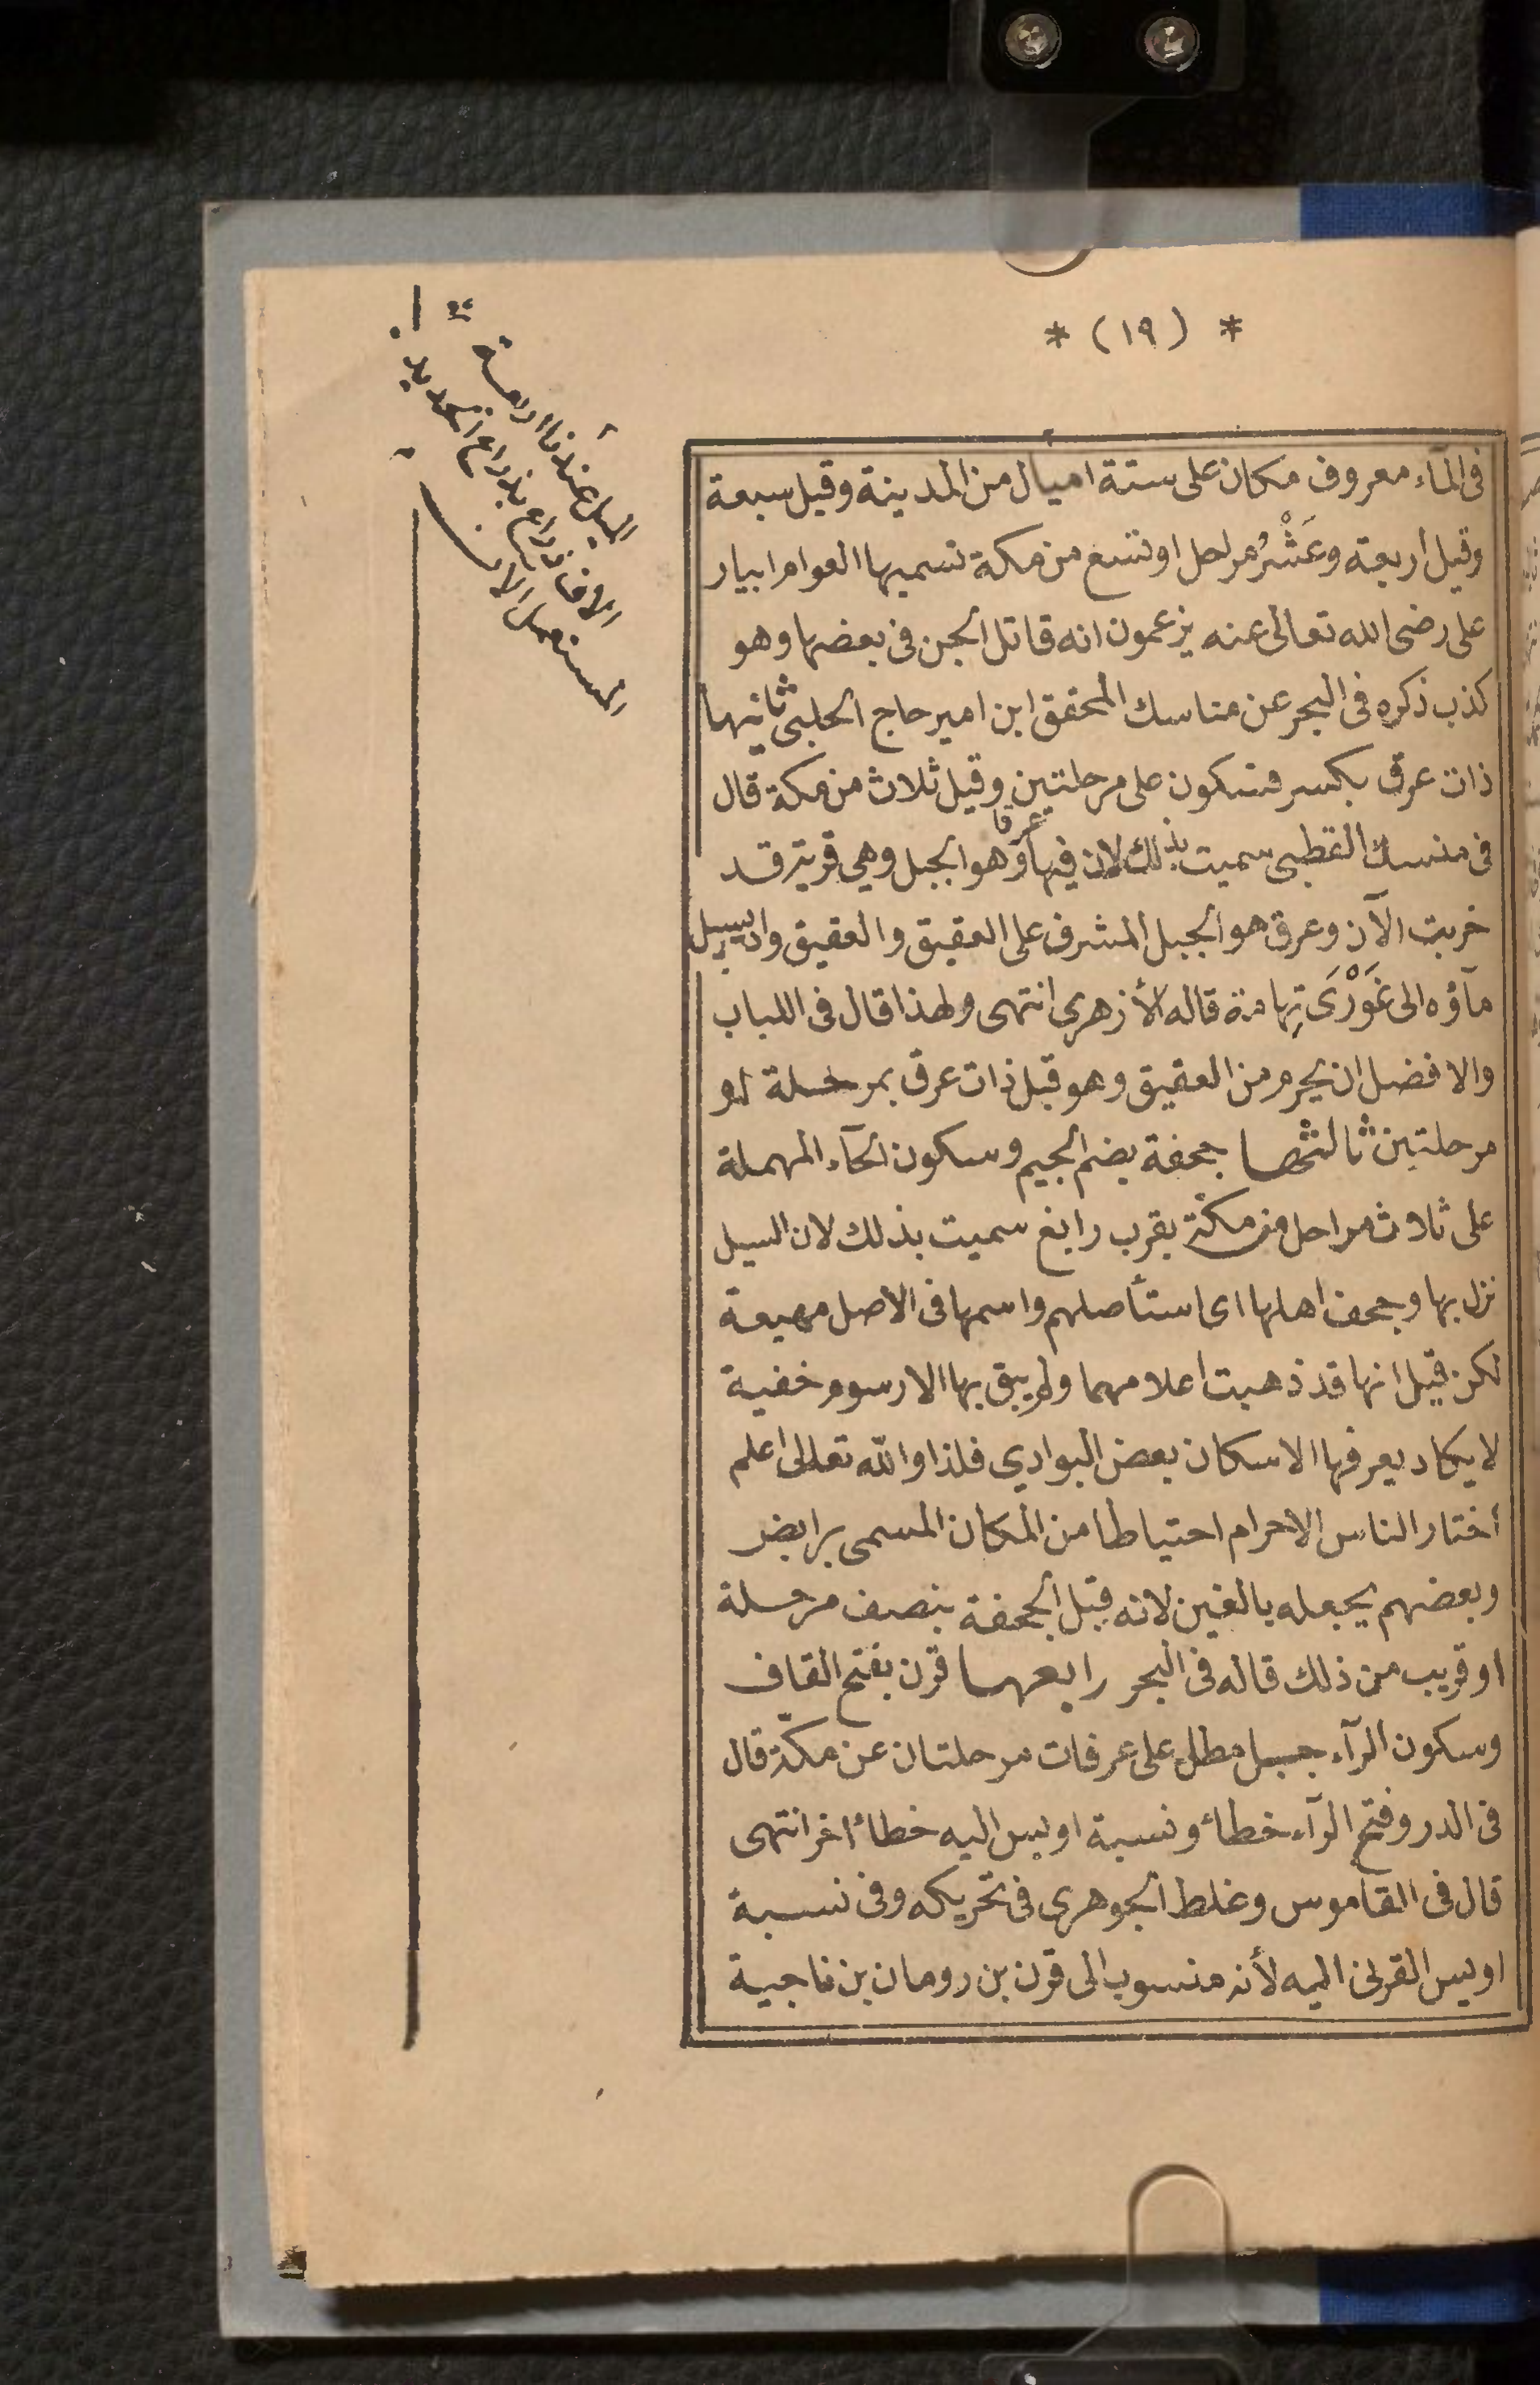 * (١٩) *
فى المآء معروف مكان على ستة اميال من المدينة وقيل سبعة
وقيل أربعة وعَشْرُ مراحل او تسع من مكة تسميها العوام ابيار
على رضى الله تعالى عنه يزعمون انه قاتل الجن فى بعضها وهو
كذب ذكره فى البحر عن مناسك المحقق ابن امير حاج الحلبى ثانيها
ذات عرق بكسر فسكون على مرحلتين وقيل ثلاث من مكة قال
فى منسك القطبى سميت بذلك لان فيها عرقا وهو الجبل وهي قرية قد
خربت الآن وعرق هو الجبل المشرف على العقيق والعقيق واد يسيل
مآؤه الى غَوْرَى تِهامة قاله الأزهرى انتهى ولهذا قال فى اللباب
والافضل ان يحرم من العقيق وهو قبل ذات عرق بمرحلة او
مرحلتين ثالثها جحفة بضم الجيم وسكون الحآء المهملة
على ثلاث مراحل من مكة بقرب رابغ سميت بذلك لان السيل
نزل بها وجحف اهلها اى استأصلهم واسمها فى الاصل مهيعة
لكن قيل انها قد ذهبت اعلامهما ولم يبق بها الا رسوم خفية
لا يكاد يعرفها الا سكان بعض البوادي فلذا والله تعالى اعلم
أختار الناس الاحرام احتياطا من المكان المسمى برابض
وبعضهم يجعله بالغين لانه قبل الجحفة بنصف مرحلة
او قريب من ذلك قاله فى البحر رابعها قرن بفتح القاف
وسكون الرآء جبل مطل على عرفات مرحلتان عن مكة قال
فى الدر وفتح الرآء خطاء ونسبة اويس اليه خطاء اخر انتهى
قال فى القاموس وغلط الجوهرى فى تحريكه وفى نسبة
اويس القرنى اليه لأنه منسوب الى قرن بن رومان بن ناجية
الميل عندنا اربعة
الاف ذراع بذراع الحديد
المستعمل الان